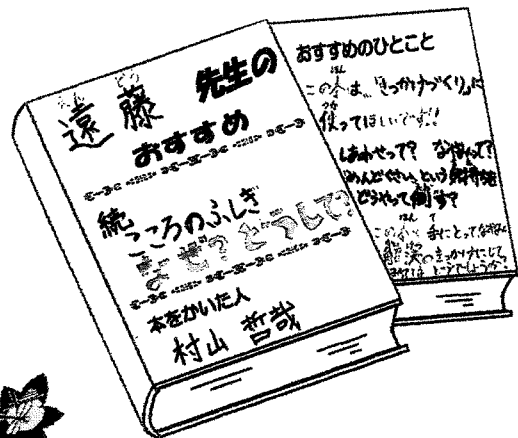 遠藤 先生の
おすすめ
続 こころのふしぎ
なぜ?どうして?
本をかいた人
村山 哲哉
おすすめのひとこと
この本は、“きっかけづくり”に
使ってほしいです!!
しあわせって? なかよしって?
めんどくさいという気持ちを
どうやって倒す?
この本を手にとって
解決のきっかけにして